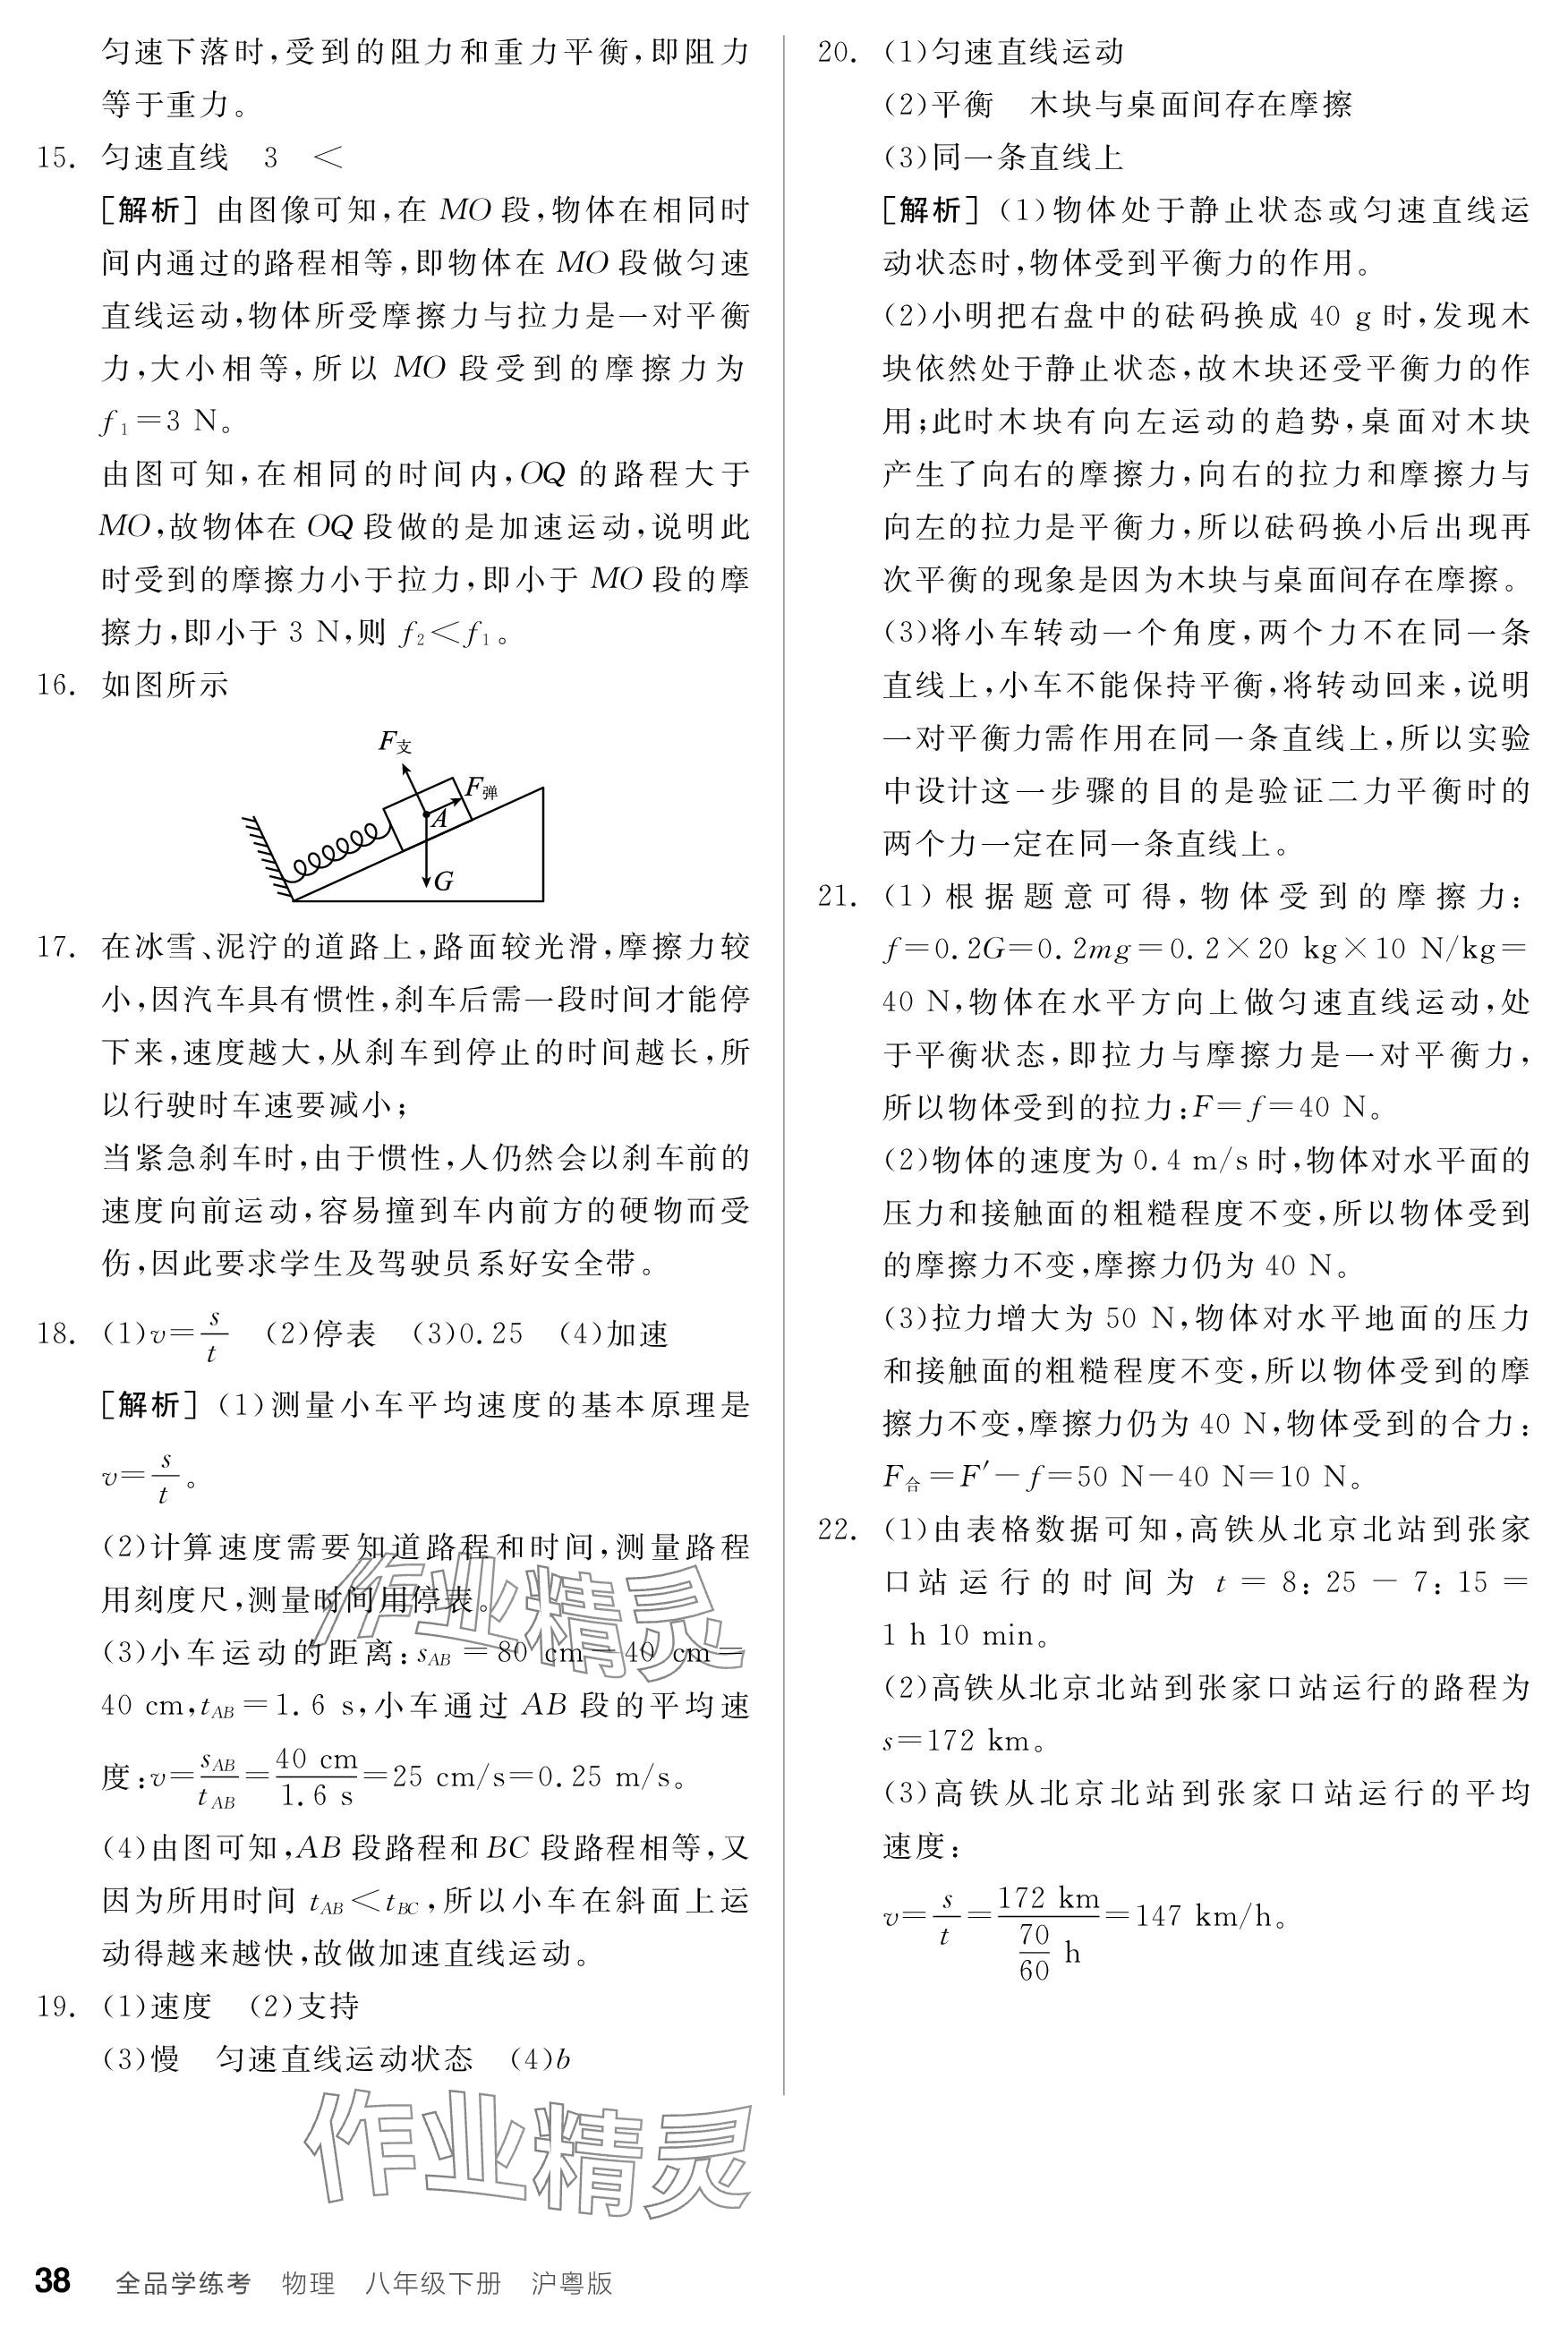 匀速下落时,受到的阻力和重力平衡,即阻力
等于重力。
15. 匀速直线 3 <
[解析] 由图像可知,在 MO 段,物体在相同时
间内通过的路程相等,即物体在 MO 段做匀速
直线运动,物体所受摩擦力与拉力是一对平衡
力,大小相等,所以 MO 段受到的摩擦力为
f₁=3 N。
由图可知,在相同的时间内,OQ 的路程大于
MO,故物体在 OQ 段做的是加速运动,说明此
时受到的摩擦力小于拉力,即小于 MO 段的摩
擦力,即小于 3 N,则 f₂<f₁。
16. 如图所示
F支
F弹
A
G
17. 在冰雪、泥泞的道路上,路面较光滑,摩擦力较
小,因汽车具有惯性,刹车后需一段时间才能停
下来,速度越大,从刹车到停止的时间越长,所
以行驶时车速要减小;
当紧急刹车时,由于惯性,人仍然会以刹车前的
速度向前运动,容易撞到车内前方的硬物而受
伤,因此要求学生及驾驶员系好安全带。
18. (1)v=s/t (2)停表 (3)0.25 (4)加速
[解析] (1)测量小车平均速度的基本原理是
v=s/t。
(2)计算速度需要知道路程和时间,测量路程
用刻度尺,测量时间用停表。
(3)小车运动的距离:sAB=80 cm-40 cm=
40 cm,tAB=1.6 s,小车通过 AB 段的平均速
度:v=sAB/tAB=40 cm/1.6 s=25 cm/s=0.25 m/s。
(4)由图可知,AB 段路程和 BC 段路程相等,又
因为所用时间 tAB<tBC,所以小车在斜面上运
动得越来越快,故做加速直线运动。
19. (1)速度 (2)支持
(3)慢 匀速直线运动状态 (4)b
20. (1)匀速直线运动
(2)平衡 木块与桌面间存在摩擦
(3)同一条直线上
[解析] (1)物体处于静止状态或匀速直线运
动状态时,物体受到平衡力的作用。
(2)小明把右盘中的砝码换成 40 g 时,发现木
块依然处于静止状态,故木块还受平衡力的作
用;此时木块有向左运动的趋势,桌面对木块
产生了向右的摩擦力,向右的拉力和摩擦力与
向左的拉力是平衡力,所以砝码换小后出现再
次平衡的现象是因为木块与桌面间存在摩擦。
(3)将小车转动一个角度,两个力不在同一条
直线上,小车不能保持平衡,将转动回来,说明
一对平衡力需作用在同一条直线上,所以实验
中设计这一步骤的目的是验证二力平衡时的
两个力一定在同一条直线上。
21. (1)根据题意可得,物体受到的摩擦力:
f=0.2G=0.2mg=0.2×20 kg×10 N/kg=
40 N,物体在水平方向上做匀速直线运动,处
于平衡状态,即拉力与摩擦力是一对平衡力,
所以物体受到的拉力:F=f=40 N。
(2)物体的速度为 0.4 m/s 时,物体对水平面的
压力和接触面的粗糙程度不变,所以物体受到
的摩擦力不变,摩擦力仍为 40 N。
(3)拉力增大为 50 N,物体对水平地面的压力
和接触面的粗糙程度不变,所以物体受到的摩
擦力不变,摩擦力仍为 40 N,物体受到的合力:
F合=F′-f=50 N-40 N=10 N。
22. (1)由表格数据可知,高铁从北京北站到张家
口站运行的时间为 t=8:25-7:15=
1 h 10 min。
(2)高铁从北京北站到张家口站运行的路程为
s=172 km。
(3)高铁从北京北站到张家口站运行的平均
速度:
v=s/t=172 km/(70/60 h)=147 km/h。
作业精灵
作业精灵
38 全品学练考 物理 八年级下册 沪粤版